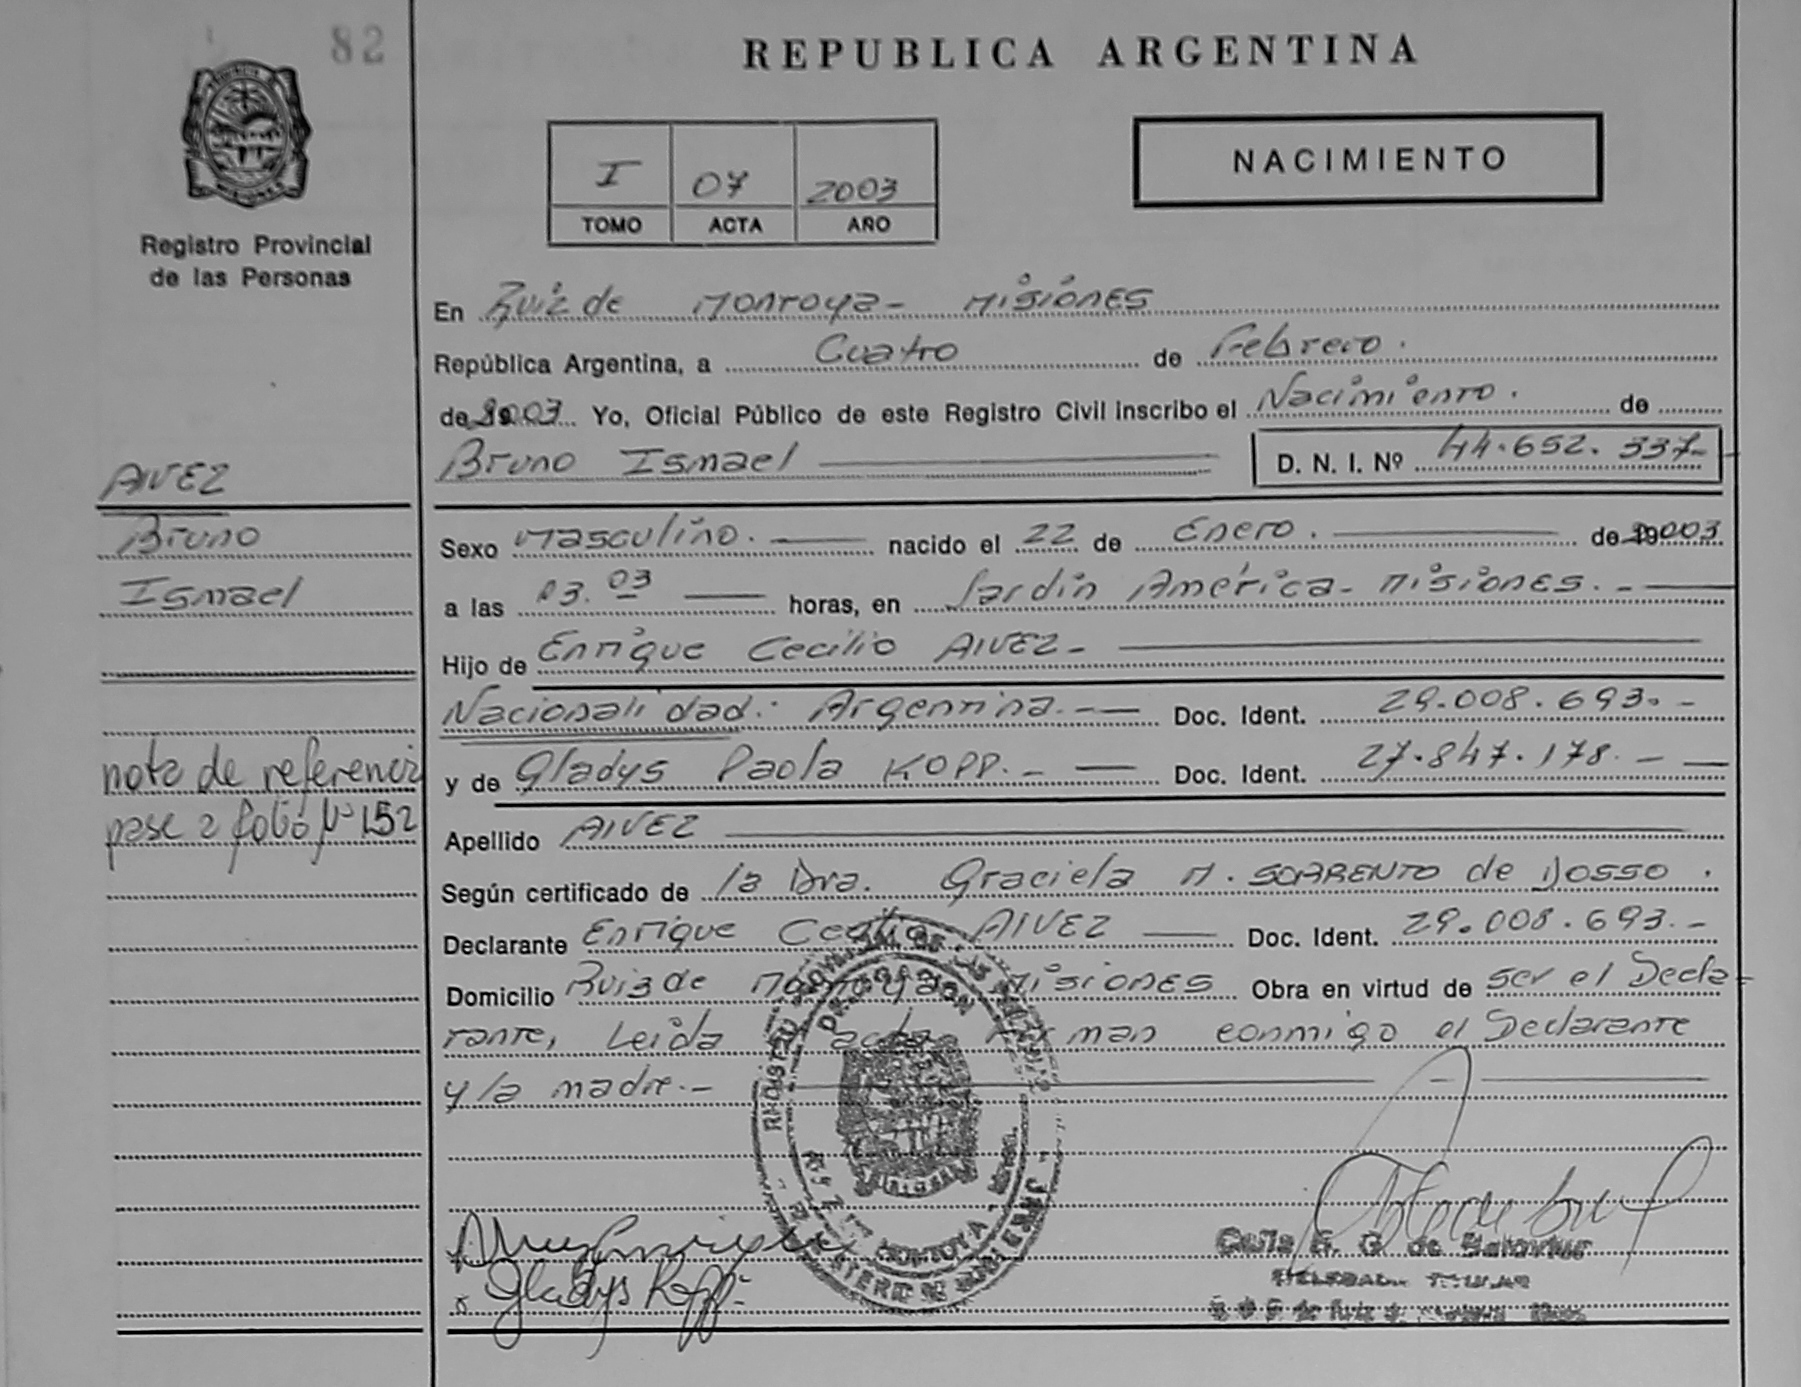 82
REPUBLICA ARGENTINA
NACIMIENTO
I 07 2003
TOMO ACTA AÑO
Registro Provincial
de las Personas
En Ruiz de Montoya - Misiones
República Argentina, a Cuatro de Febrero.
de 2003 Yo, Oficial Público de este Registro Civil inscribo el Nacimiento. de
Bruno Ismael D. N. I. Nº 44.652.337-
AlVEZ
Bruno
Ismael
Sexo Masculino. nacido el 22 de Enero. de 2003
a las 03.03 horas, en Jardín América - Misiones. -
Hijo de Enrique Cecilio AlVEZ -
Nacionalidad: Argentina. - Doc. Ident. 29.008.693. -
y de Gladys Paola KOPP. - Doc. Ident. 27.847.178. -
nota de referencia
pase a folio Nº 152
Apellido AlVEZ
Según certificado de la Dra. Graciela M. SORRENTO de DOSSO.
Declarante Enrique Cecilio AlVEZ Doc. Ident. 29.008.693. -
Domicilio Ruiz de Montoya Misiones Obra en virtud de ser el Decla-
rante, Leida acta Firman conmigo el Declarante
y la madre. -
Gladys Kopp